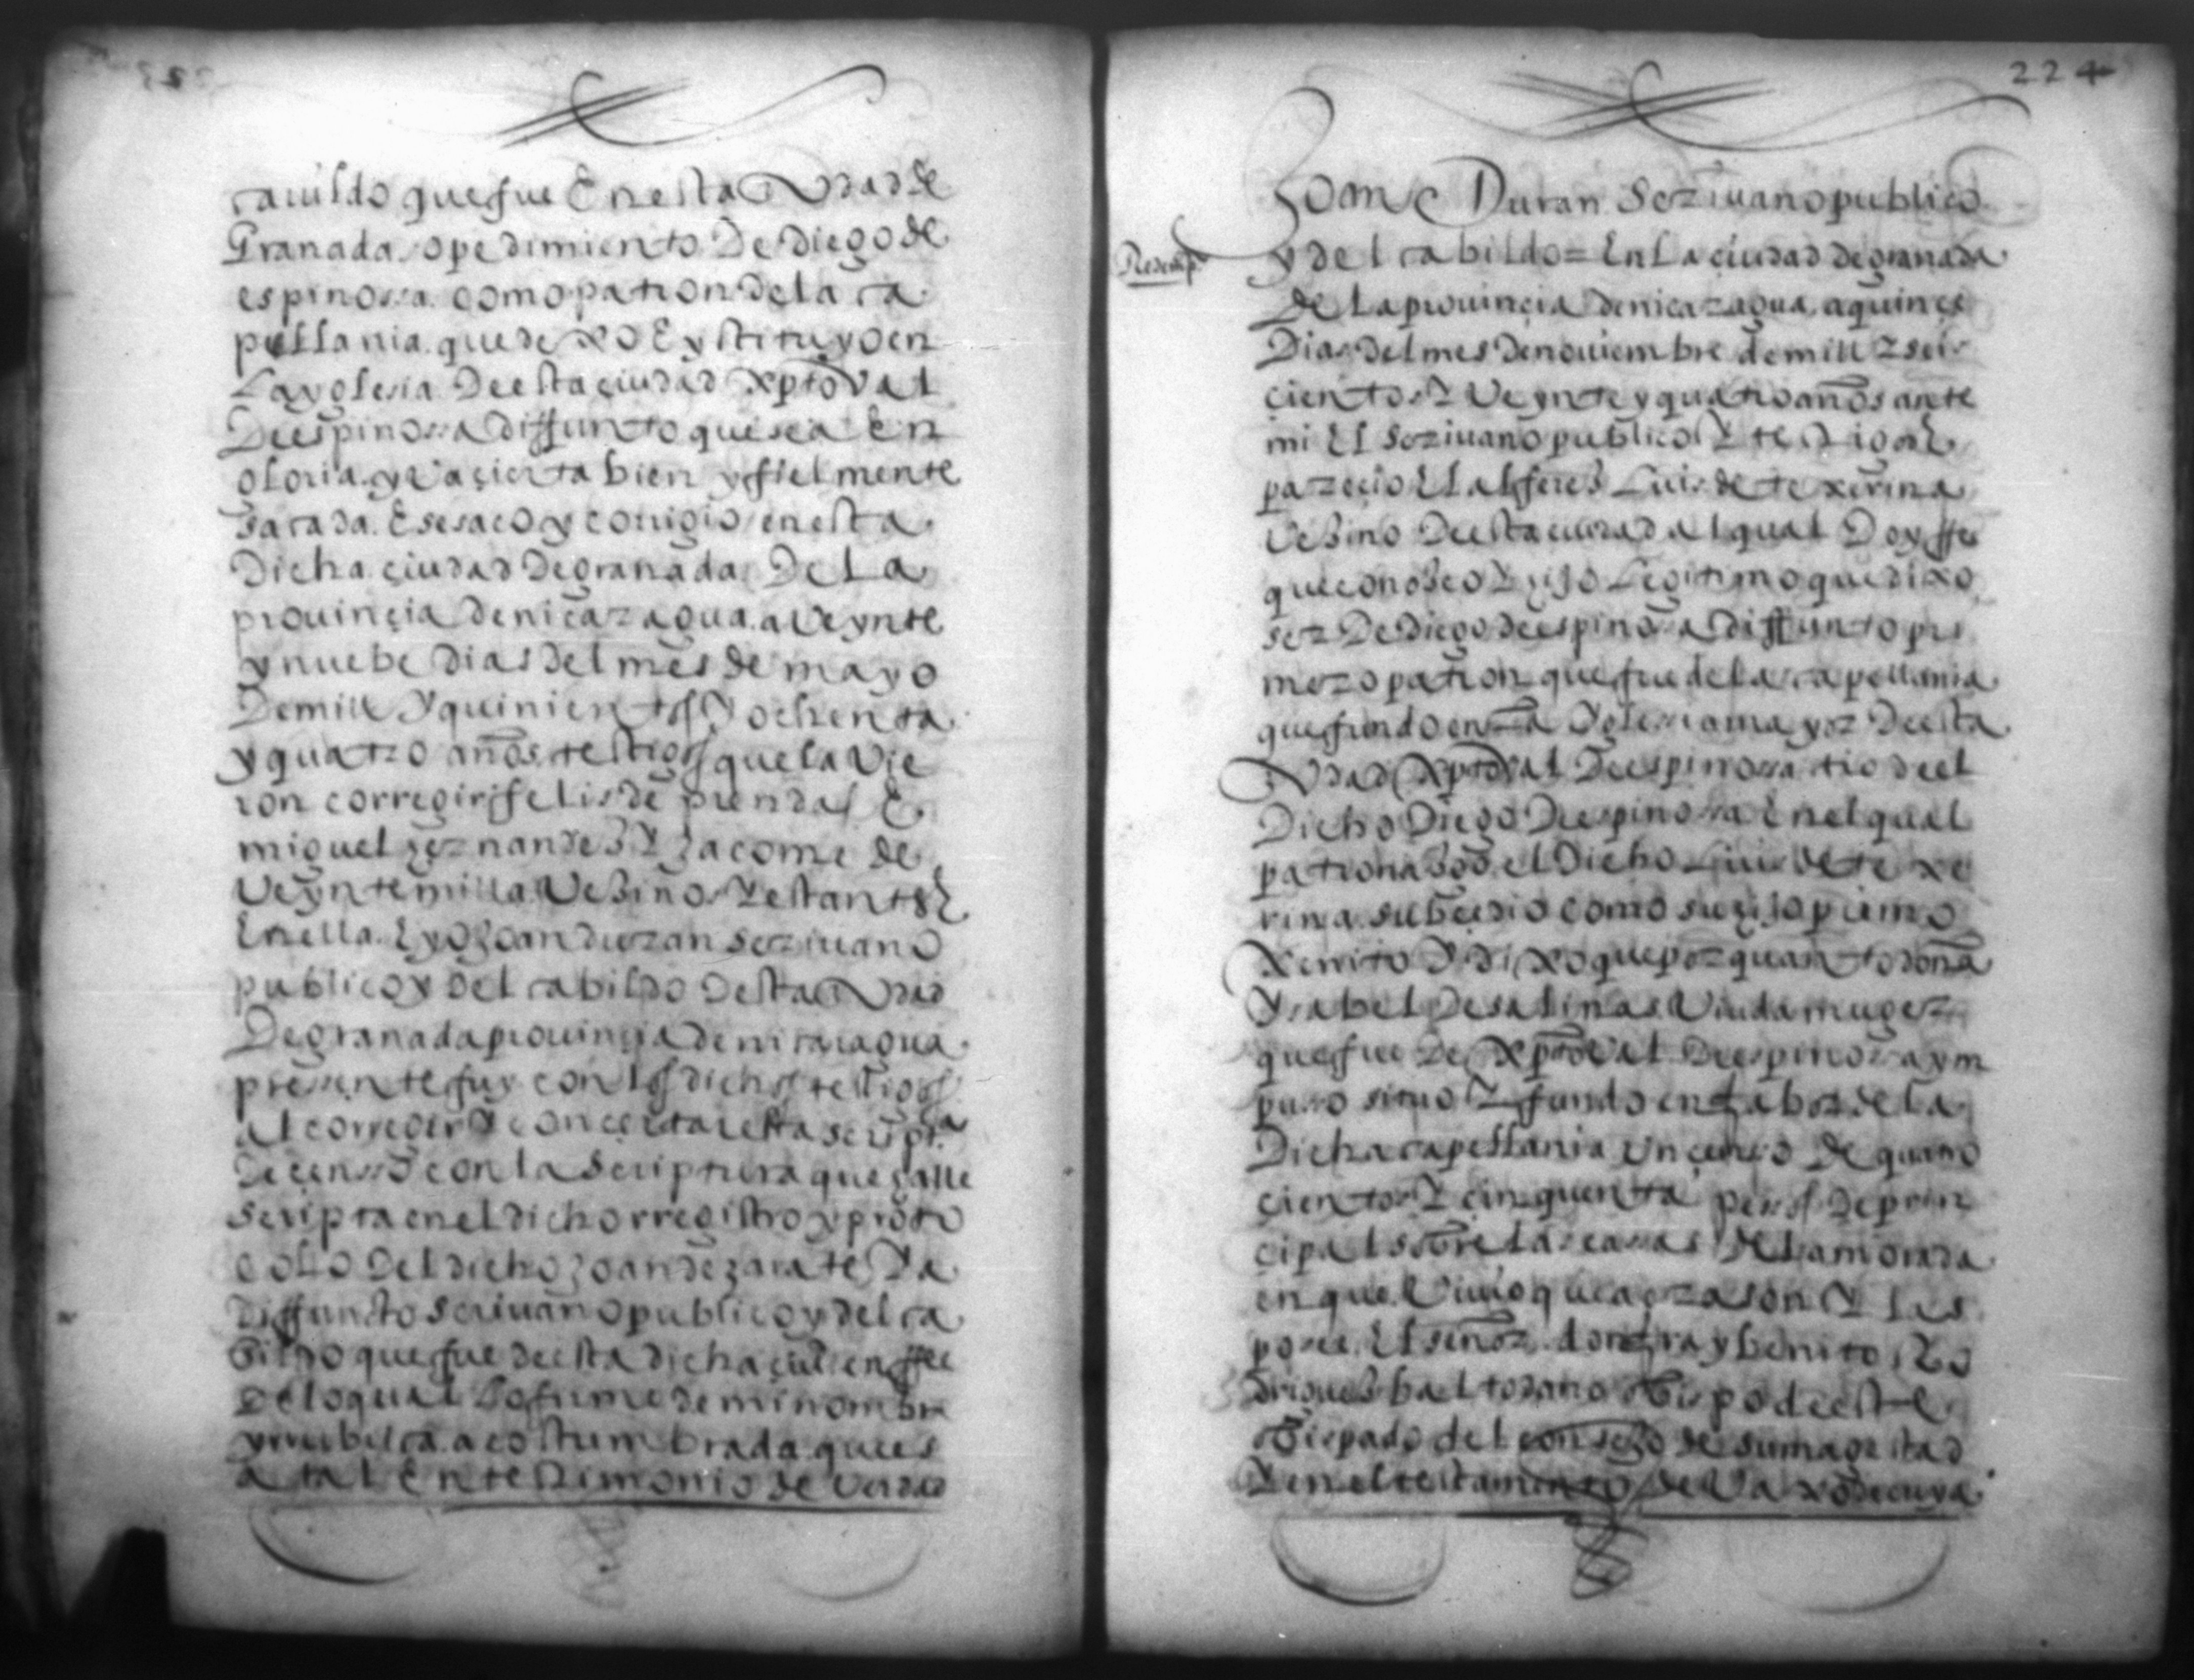 cauildo que fue En esta çiudad de
Granada. o pedimiento De Diego de
espinossa. como patron de la ca
pellania. que dexo E ystituyo en
La yglesia Deesta çiudad xptoval
De espinossa diffunto que sea En
gloria. y va çierta bien y fielmente
sacada. E se saco y corrigio en esta
Dicha çiudad de granada De La
prouinçia de nicaragua. a Veynte
y nuebe dias del mes de mayo
De mill y quinientos y ochenta
y quatro años. testigos que la Vie
ron corregir felis de prendas E
miguel hernandes y Jacome de
Veyntemilla Vesinos y estantes
En ella. E yo Joan duran scriuano
publico y del cabildo desta çiudad
De granada prouinçia de nicaragua
pressente fuy con los dichos testigos
al corregir y conçertar esta script.ra
de çensso con la scriptura que halle
scripta en el dicho rregistro y proto
colo del dicho Joan de zarate Ya
diffuncto scriuano publico y del ca
bildo que fue deesta dicha çiud en ffee
De lo qual Lo firme de mi nombre
y rrubrica acostumbrada que es
a tal En testimonio de verdad
224
Joan Duran Scriuano publico
Redemp.
y del cabildo = En La çiudad de granada
de La prouinçia de nicaragua. a quinçe
Dias del mes de nouiembre de mill y seis
çientos y Veynte y quatro años ante
mi El scriuano publico y testigos
pareçio El alferes Luis de texerina
Vesino deesta ciudad al qual Doy ffee
que conosco y hijo Legitimo que dixo
ser De diego de espinossa diffunto pri
mero patron que fue de la capellania
que fundo en La Yglessia mayor deesta
çiudad xptoval De espinossa tio deel
Dicho Diego De espinossa En el qual
patronasgo. el Dicho Luis de texe
rina. subcedio como su hijo primo
xenito y dixo que por quanto doña
Ysabel de salinas Viuda muger
que fue De xptoval De espinossa ym
pusso situo y fundo en fabor de la
Dicha capellania un çensso de quatro
çientos y cinquenta pessos de prin
çipal sobre las cassas de La morada
en que Viuio que agora son y las
posee. El señor don fray benito Ro
drigues baltodano obispo de este
obispado del consejo de su magestad
y en el testamento de Vaxo de cuya